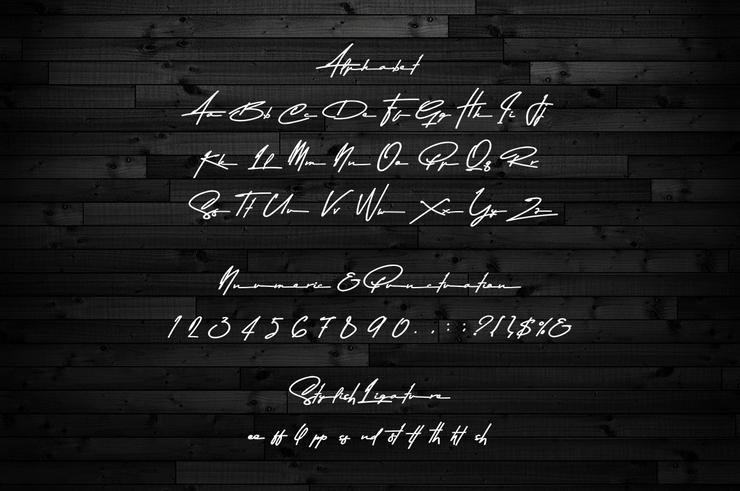 Alphabet
Aa Bb Cc Dd Ee Ff Gg Hh Ii Jj
Kk Ll Mm Nn Oo Pp Qq Rr
Ss Tt Uu Vv Ww Xx Yy Zz
Numeric & Punctuation
1 2 3 4 5 6 7 8 9 0 . , : ; ? ! } $ % &
Stylish Ligature
ee ff ll pp ss nd st tt th ht sh